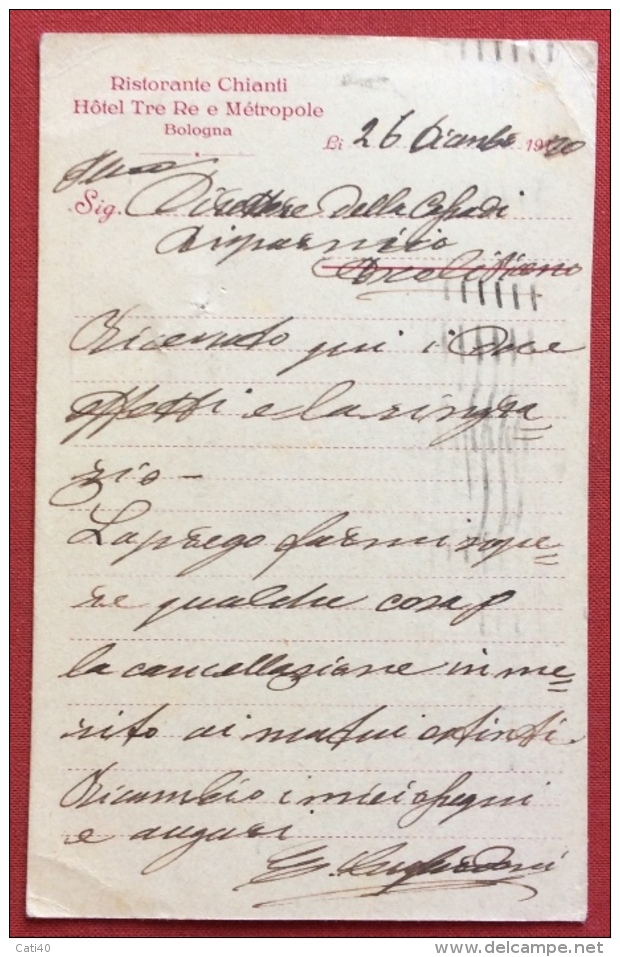 Ristorante Chianti
Hôtel Tre Re e Métropole
Bologna
Li 26 Dicembre 1920
Sig. Direttore della Cassa di
Risparmio
Ricevuto qui i Due
effetti e la ringra=
zio —
La prego farmi sape=
re qualche cosa p
la cancellazione in me=
rito ai mutui estinti.
Ricambio i miei ossequi
e auguri
Cati40
www.delcampe.net